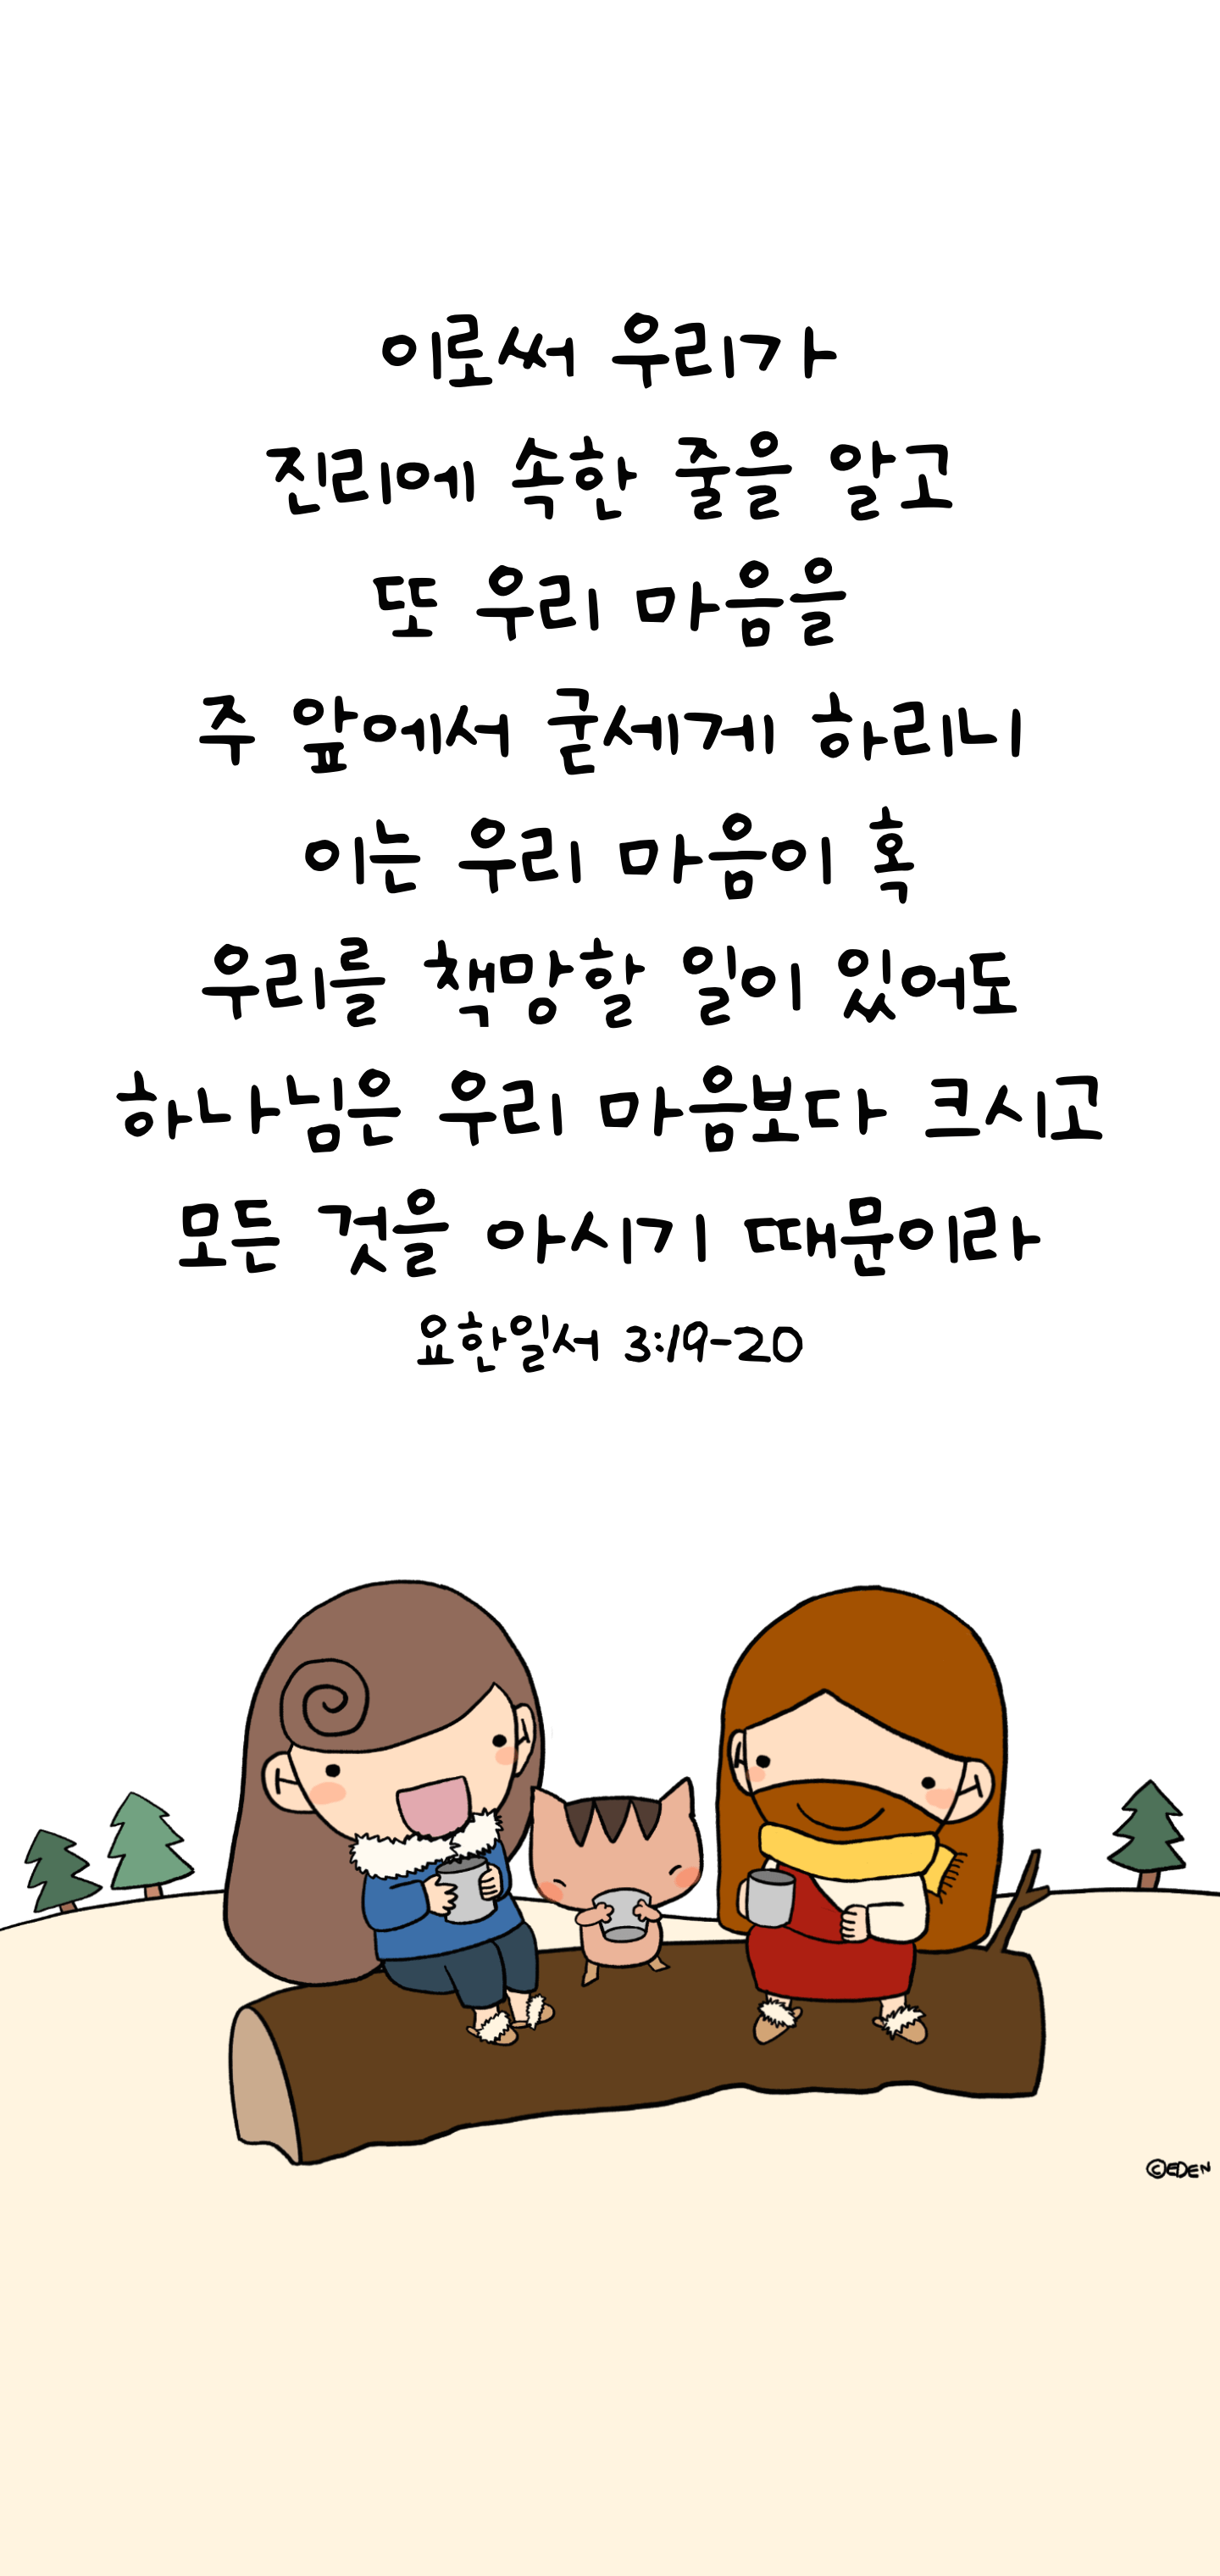 이로써 우리가
진리에 속한 줄을 알고
또 우리 마음을
주 앞에서 굳세게 하리니
이는 우리 마음이 혹
우리를 책망할 일이 있어도
하나님은 우리 마음보다 크시고
모든 것을 아시기 때문이라
요한일서 3:19-20
©EDEN